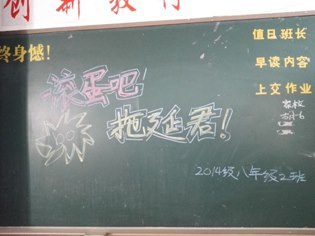 创新教育
终身憾!
值日班长
早读内容
上交作业
滚蛋吧
拖延君!
2014级八年级2班